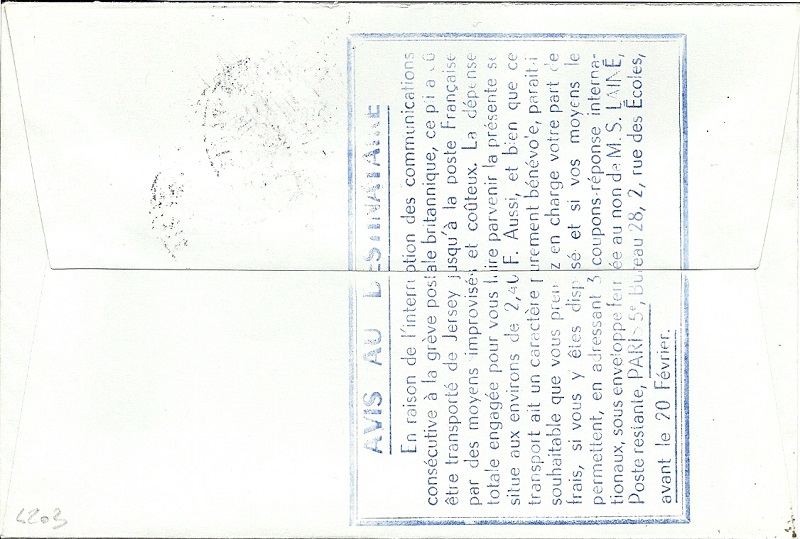 AVIS AU DESTINATAIRE
En raison de l'interruption des communications
consécutive à la grève postale britannique, ce pli a dû
être transporté de Jersey jusqu'à la poste Française
par des moyens improvisés et coûteux. La dépense
totale engagée pour vous faire parvenir la présente se
situe aux environs de 2,40 F. Aussi, et bien que ce
transport ait un caractère purement bénévole, paraît-i
souhaitable que vous preniez en charge votre part de
frais, si vous y êtes disposé et si vos moyens le
permettent, en adressant 3 coupons-réponse interna-
tionaux, sous enveloppe fermée au non de M. S. LAINÉ,
Poste restante, PARIS 5e, Bureau 28, 2, rue des Écoles,
avant le 20 Février.
4203